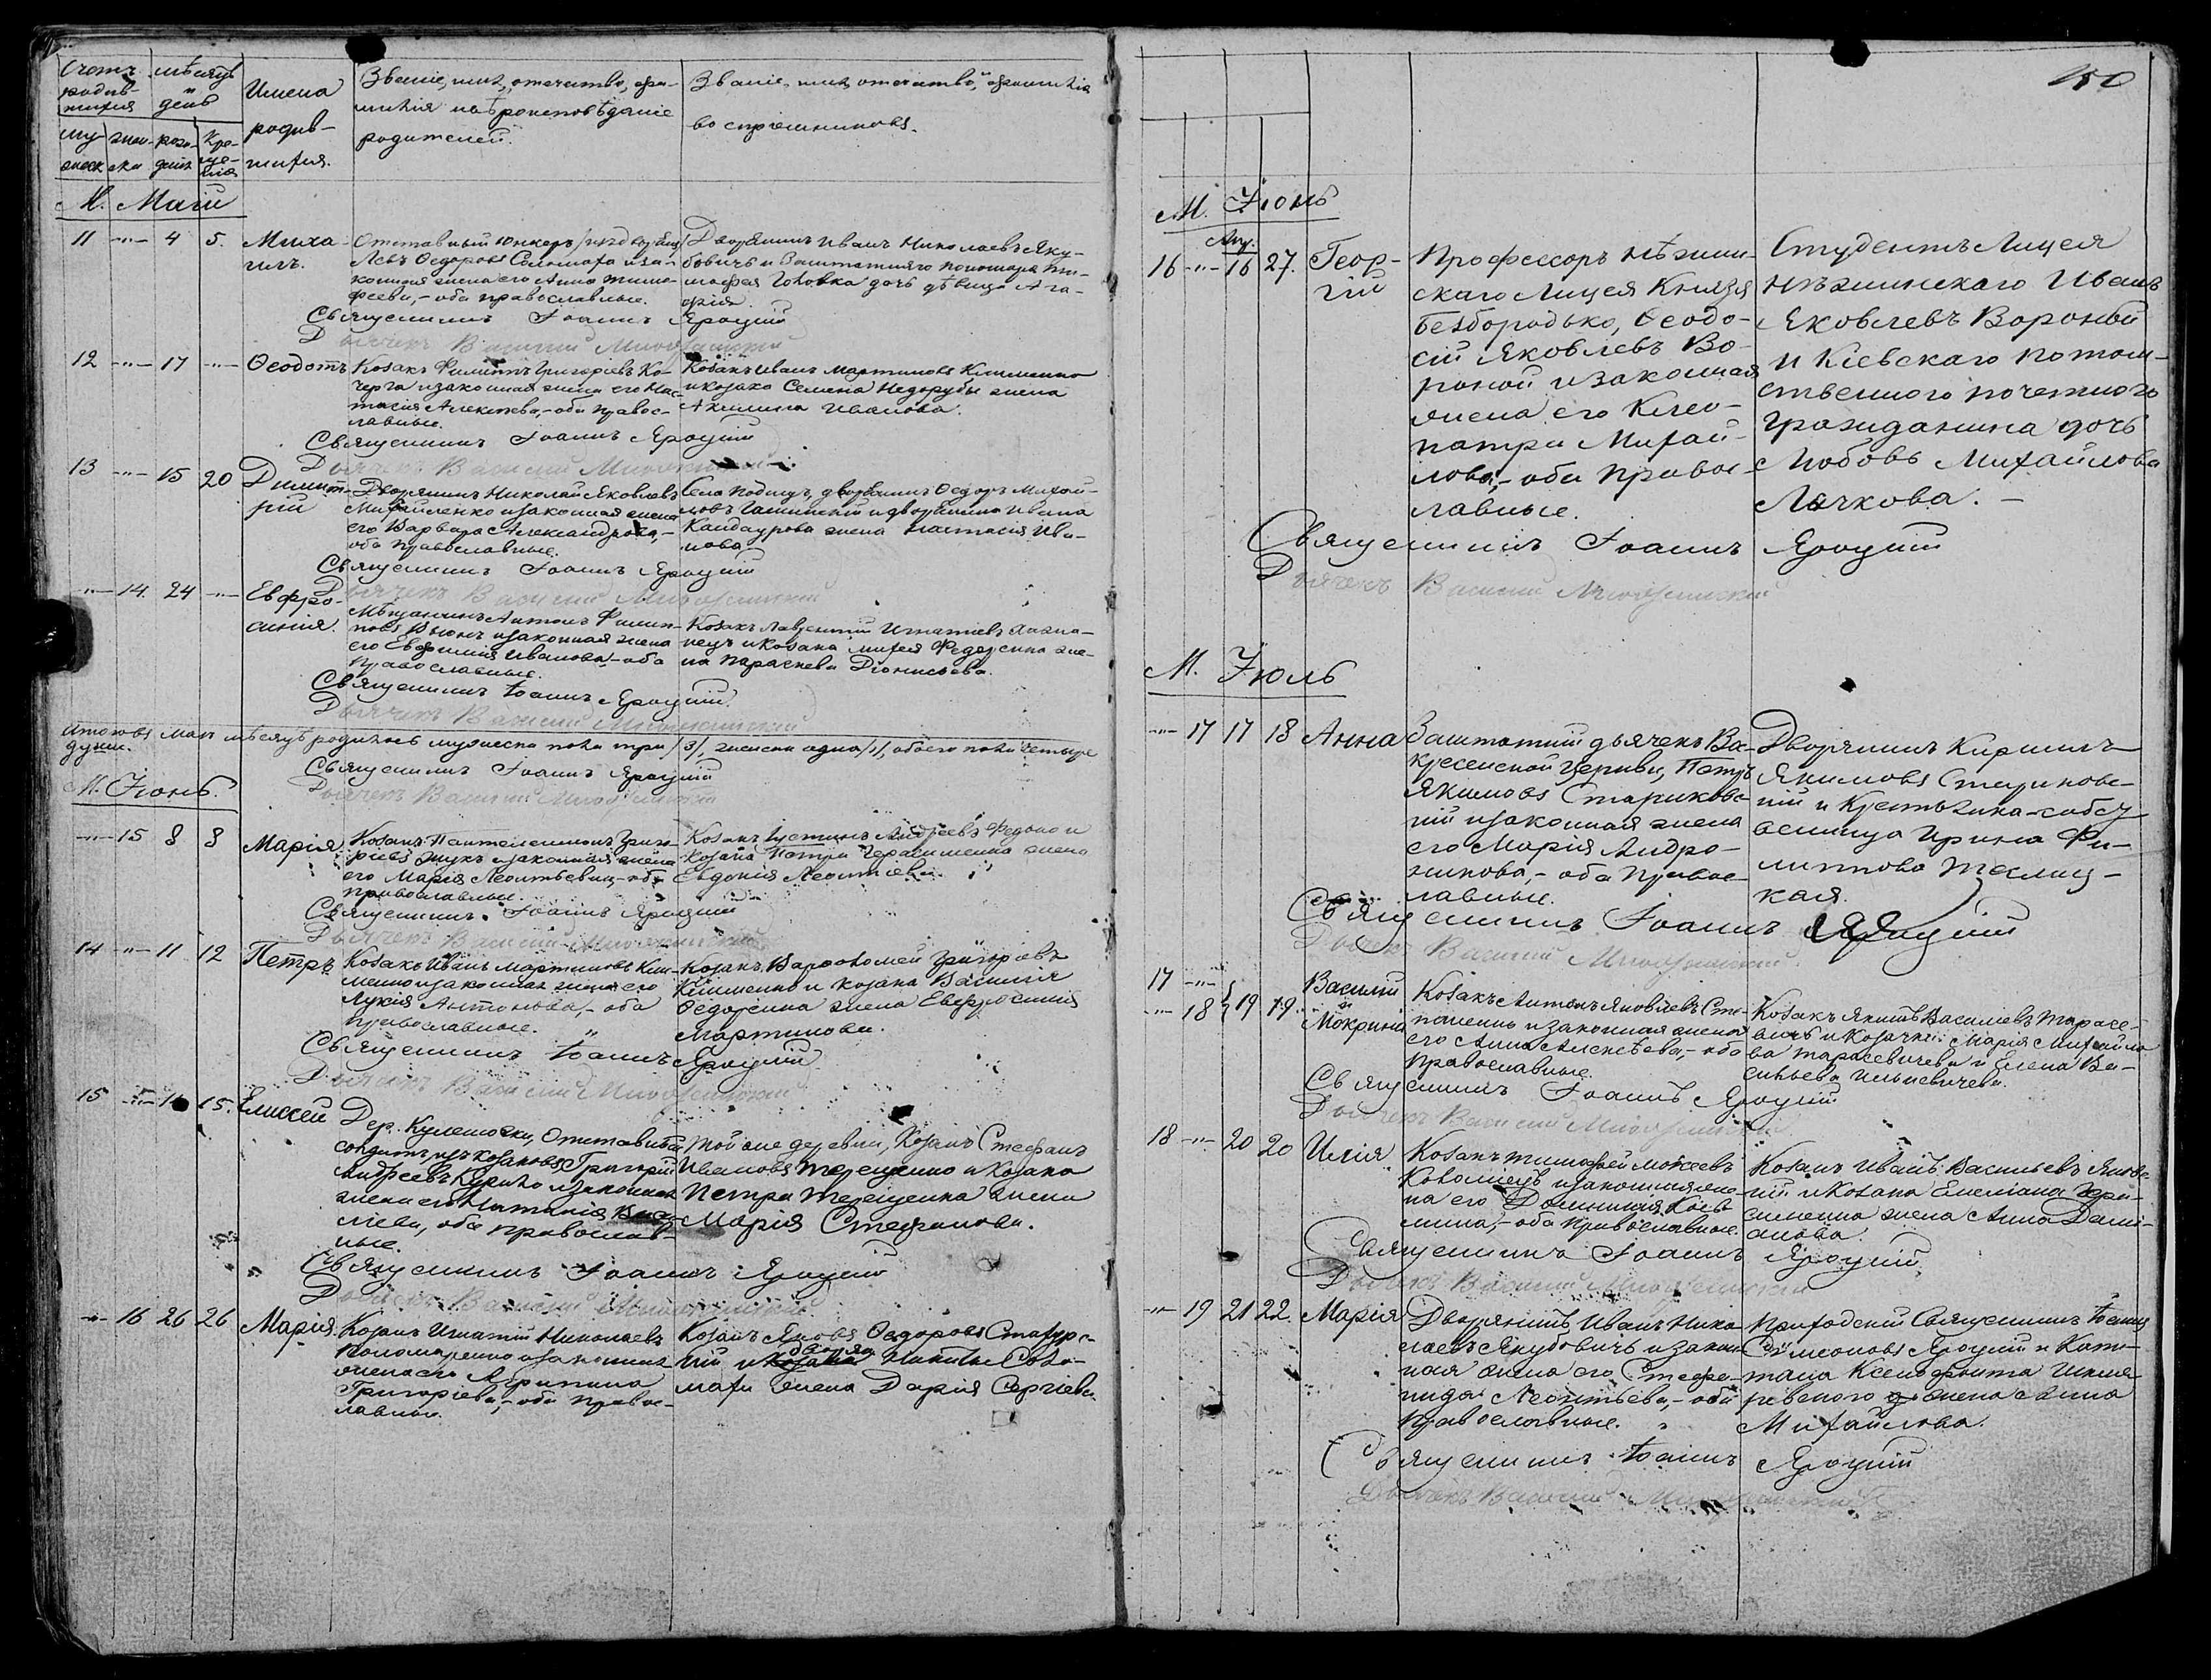 Счетъ родив-шихся
мѣсяцъ и день
Имена родив-шихся.
Званіе, имя, отечество, фа-
милія и вѣроисповѣданіе
родителей.
Званіе, имя, отечество, и фамилія
воспріемниковъ.
му-жеск
жен-ска
рож-денія
Кре-ще-нія
М. Маій
11 -"- 4 5. Миха-илъ.
Отставный Юнкеръ /изъ дворянъ/
Левъ Ѳедоровъ Соломаха и за-
конная жена его Анна Тимо-
феева,- оба православные.
Дворянинъ Иванъ Николаевъ Яку-
бовичъ и Заштатнаго пономаря Ти-
мофея Головка дочь дѣвица Ага-
фія.
Священникъ Іоаннъ Яроцкій
Дьячекъ Василій
12 -"- 17 -"- Ѳеодотъ
Козакъ Филиппъ Григоріевъ Ко-
черга и законная жена его Нас-
тасія Алексѣева,- оба правос-
лавные.
Козакъ Иванъ Мартиновъ Клименко
и козака Семена Недорубы жена
Акилина Иванова.
Священникъ Іоаннъ Яроцкій
Дьячекъ Василій
13 -"- 15 20 Димит-рій
Дворянинъ Николай Яковлевъ
Михайленко и законная жена
его Варвара Александрова,-
оба православные.
Села дворянинъ Ѳедоръ Михай-
ловъ и дворянина Ивана
Кандаурова жена Настасія Ива-
нова.
Священникъ Іоаннъ Яроцкій
Дьячекъ Василій
-"- 14. 24 -"- Евфро-синія.
Мѣщанинъ Антонъ Филип-
повъ Вьюнъ и законная жена
его Евфимія Иванова- оба
православные.
Козакъ Лаврентій Игнатіевъ
и козака Михея Федоренка же-
на Параскева Діонисьева.
Священникъ Іоаннъ Яроцкій.
Дьячекъ Василій
Итого въ маѣ мѣсяцѣ родилось мужеска пола три /3/, женска одна /1/, обоего пола четыре
души.
Священникъ Іоаннъ Яроцкій
Дьячекъ Василій
М. Іюнь.
-"- 15 8 8 Марія
Козакъ Пантелеимонъ Григо-
ріевъ Жукъ и законная жена
его Марія Леонтьева,- оба
православные.
Козакъ Іустинъ Андреевъ Федько и
козака Петра Герасименка жена
Евдокія Леонтіева.
Священникъ Іоаннъ Яроцкій
Дьячекъ Василій
14 -"- 11 12 Петръ
Козакъ Иванъ Мартиновъ Кли-
менко и законная жена его
Лукія Антонова,- оба
православные.
Козакъ Варѳоломей Григоревъ
Клименко и козака Василія
Ѳедоренка жена Евфросинія
Мартинова.
Священникъ Іоаннъ Яроцкій
Дьячекъ Василій
15 -"- 15. Елисей
Дер. Кулешовки, Отставный
солдатъ изъ козаковъ Григорій
Андреевъ Курило и законная
жена его Наталія
оба православ-
ные.
Той же деревни, Козакъ Стефанъ
Ивановъ Терещенко и козака
Петра Терещенка жена
Марія Стефанова.
Священникъ Іоаннъ Яроцкій
Дьячекъ Василій
-"- 16 26 26 Марія.
Козакъ Игнатій Николаевъ
Пономаренко и законная
жена его Агрипина
Григоріева,- оба правос-
лавные.
Козакъ Яковъ Ѳедоровъ
и Никиты Соло-
махи жена Дарія Сергіева
150
М. Іюнь
16 -"- 16 27. Геор-гій
Профессоръ Нѣжин-
скаго Лицея Князя
Безбородько, Ѳеодо-
сій Яковлевъ Во-
роной и законная
жена его Клео-
патра Михай-
лова,- оба правос-
лавные.
Студентъ Лицея
Нѣжинскаго Иванъ
Яковлевъ Вороной
и Кіевскаго потом-
ственного почетного
гражданина дочь
Любовь Михайлова
Лачкова. -
Священникъ Іоаннъ Яроцкій
Дьячекъ Василій
М. Іюль
-"- 17 17 18 Анна
Заштатный дьячекъ Вос-
кресенской Церкви, Петръ
Якимовъ Стариковс-
кій и законная жена
его Марія Андро-
никова,- оба правос-
лавные.
Дворянинъ Кирилъ
Якимовъ Стариковс-
кій и Крестьянка-собст-
венница Ирина Фи-
липпова
кая.
Священникъ Іоаннъ Яроцкій
Дьячекъ Василій
17 -"- Василій
-"- 18 19 19. и Мокрина
Козакъ Антонъ Яковлевъ Сте-
паненко и законная жена
его Анна Алексѣева,- оба
православные.
Козакъ Якимъ Василіевъ Тарасе-
вичъ и козачки: Марія Михайло-
ва Тарасевичева и Елена Ва-
сильева
Священникъ Іоаннъ Яроцкій
Дьячекъ Василій
18 -"- 20 20 Илія
Козакъ Тимофей Мокеевъ
Коломіецъ и законная же-
на его Домникія Козь-
мина,- оба православные.
Козакъ Иванъ Васильевъ
и козака Емеліана Гера-
сименка жена Анна Дамі-
анова.
Священникъ Іоаннъ Яроцкій
Дьячекъ Василій
-"- 19 21 22. Марія
Дворянинъ Иванъ Нико-
лаевъ Якубовичъ и закон-
ная жена его Стефа-
нида Леонтьева,- оба
православные.
Приходскій Священникъ Іоаннъ
Симеоновъ Яроцкій и Капи-
тана Ксенофонта
жена Анна
Михайлова.
Священникъ Іоаннъ Яроцкій
Дьячекъ Василій